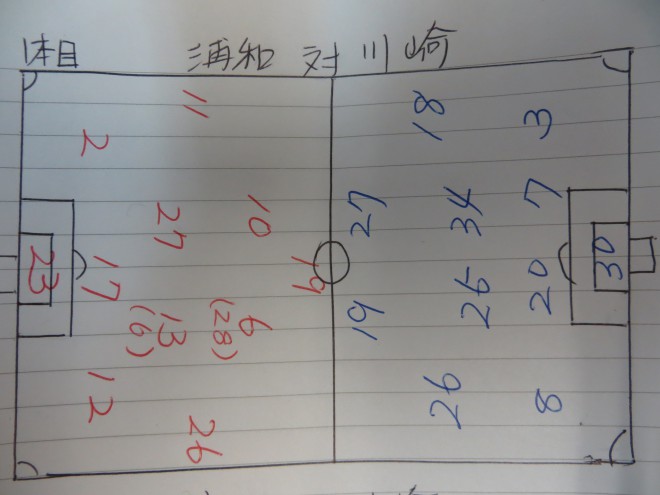 1本目 浦和 対 川崎
11
2
10
27
19
23
17
6
(28)
13
(6)
12
26
18
3
27
34
7
30
19
26
20
26
8